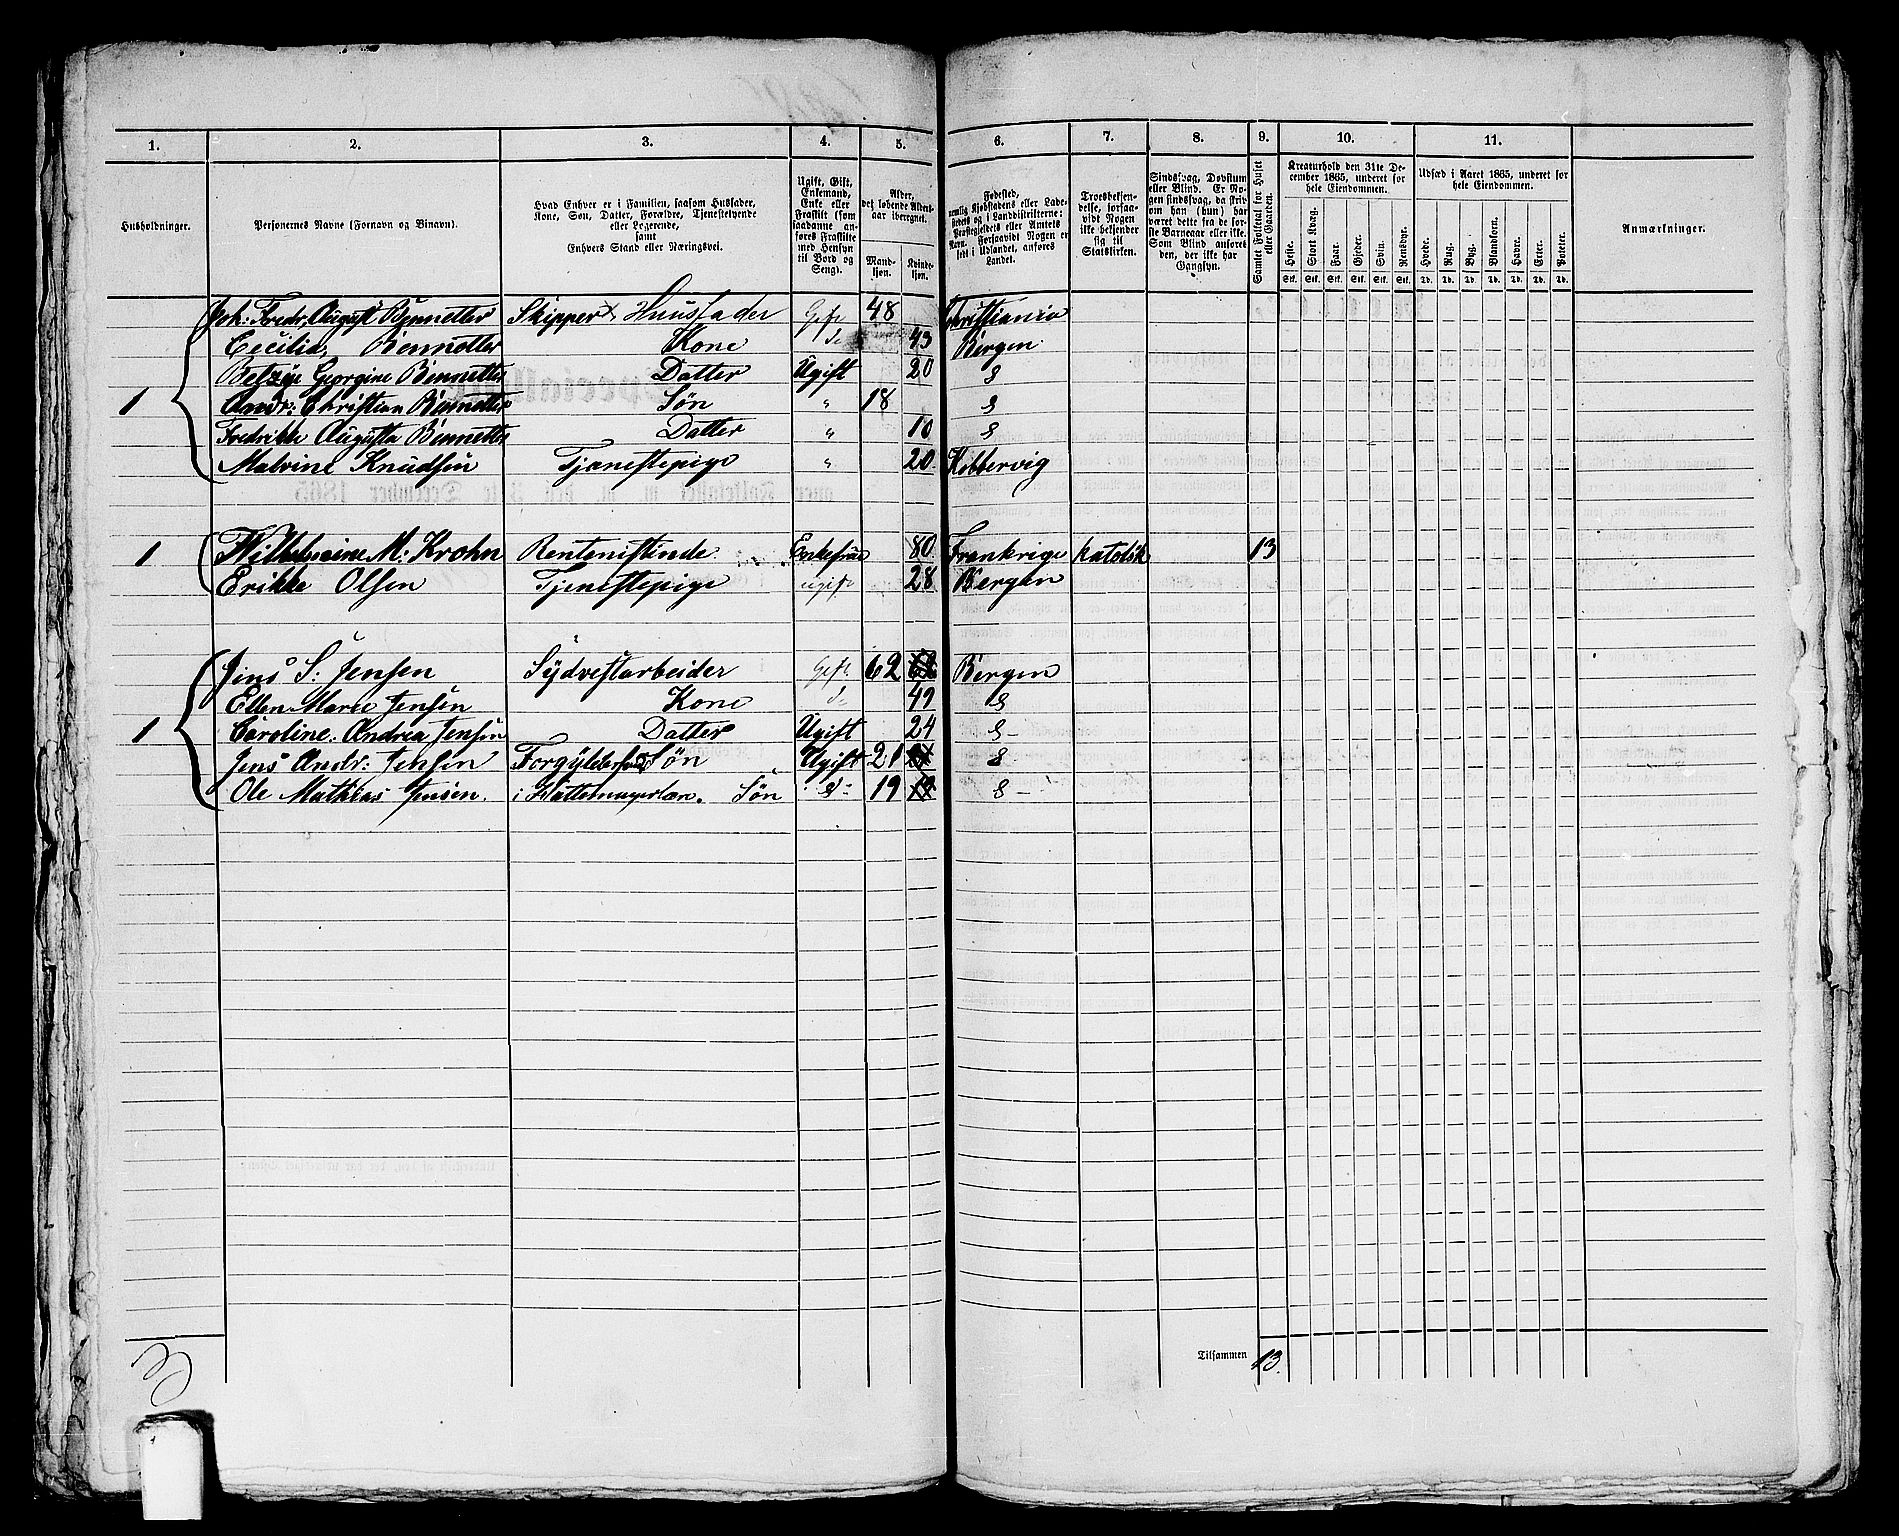 1. 2. 3. 4. 5. 6. 7. 8. 9. 10. 11.
Husholdninger.
Personernes Navne (Fornavn og Binavn).
Hvad Enhver er i Familien, saasom Husfader,
Kone, Søn, Datter, Forældre, Tjenestetyende
eller Logerende,
samt
Enhvers Stand eller Næringsvei.
Ugift, Gift,
Enkemand,
Enke eller
Fraskilt (som
saadanne an-
føres Fraskilte
med Hensyn
til Bord og
Seng).
Alder,
det løbende Alders-
aar iberegnet.
Mand-
kjøn.
Kvinde-
kjøn.
Fødested,
nemlig Kjøbstadens eller Lade-
stedets og i Landdistrikterne:
Præstegjeldets eller Amtets
Navn. Forsaavidt Nogen er
født i Udlandet, anføres
Landet.
Troesbekjen-
delse, forsaa-
vidt Nogen
ikke bekjender
sig til
Statskirken.
Sindssvag, Døvstum
eller Blind. Er No-
gen sindssvag, da skriv
om han (hun) har
været dette fra de før-
ste Barneaar eller ikke.
Som Blind anføres
den, der ikke har
Gangsyn.
Samlet Folketal for Huset
eller Gaarden.
Kreaturhold den 31te De-
cember 1865, underet for
hele Eiendommen.
Heste. Stort Kvæg. Faar. Gjeder. Sviin. Rensdyr.
Stk. Stk. Stk. Stk. Stk. Stk.
Udsæd i Aaret 1865, underet for
hele Eiendommen.
Hvede. Rug. Byg. Blandkorn. Havre. Erter. Poteter.
Td. Td. Td. Td. Td. Td. Td.
Anmærkninger.
Joh: Fredr, August Bennetter Skipper Huusfader Gift 48 Christiania
Cecilia Bennetter Kone do 43 Bergen
Betzye Georgine Bennetter Datter Ugift 20 do
1 Andr: Christian Bennetter Søn " 18 do
Fredrikke Augusta Bennetter Datter " 10 do
Malvine Knudsen Tjenestepige " 20 Kobbervig
1 Wilhelmine M. Krohn Rentenistinde Enkefrue 80 Frankrige katolsk 13
Erikke Olsen Tjenestepige ugift 28 Bergen
Jens S: Jensen Sydvestarbeider Gift 62 Bergen
Ellen Marie Jensen Kone do 49 do
1 Caroline Andrea Jensen Datter Ugift 24 do
Jens Andr: Jensen Søn Ugift 21 do
Ole Mathias Jensen. i Hattemagerlære. Søn do 19 do
Tilsammen 13.
3